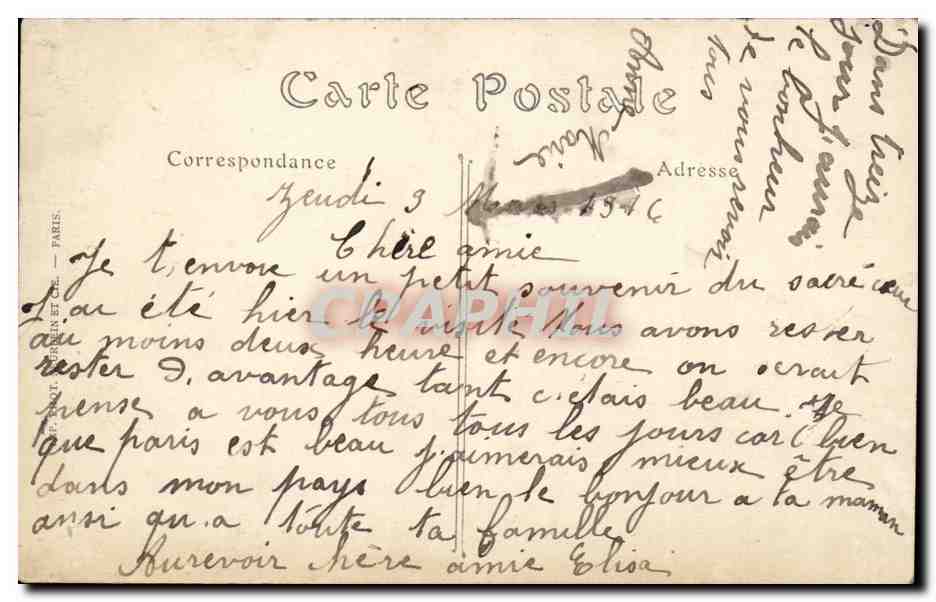 Carte Postale
Correspondance
Adresse
Jeudi 9 Mars 1916
Chère amie
Je t,envoie un petit souvenir du sacré cœur
J'ai été hier le visité nous avons rester
au moins deux heure et encore on serait
rester D,avantage tant c,étais beau. Je
pense a vous tous tous les jours car bien
que paris est beau j,aimerais mieux être
dans mon pays bien le bonjour a ta maman
ansi qu,a toute ta famille
Aurevoir chère amie Elisa
Dans treize
jour j'aurais
le
bonheur
de vous revoir
tous
Anna Marie
P. PHOT. NEURDEIN ET CIE. — PARIS.
CPAPHIL